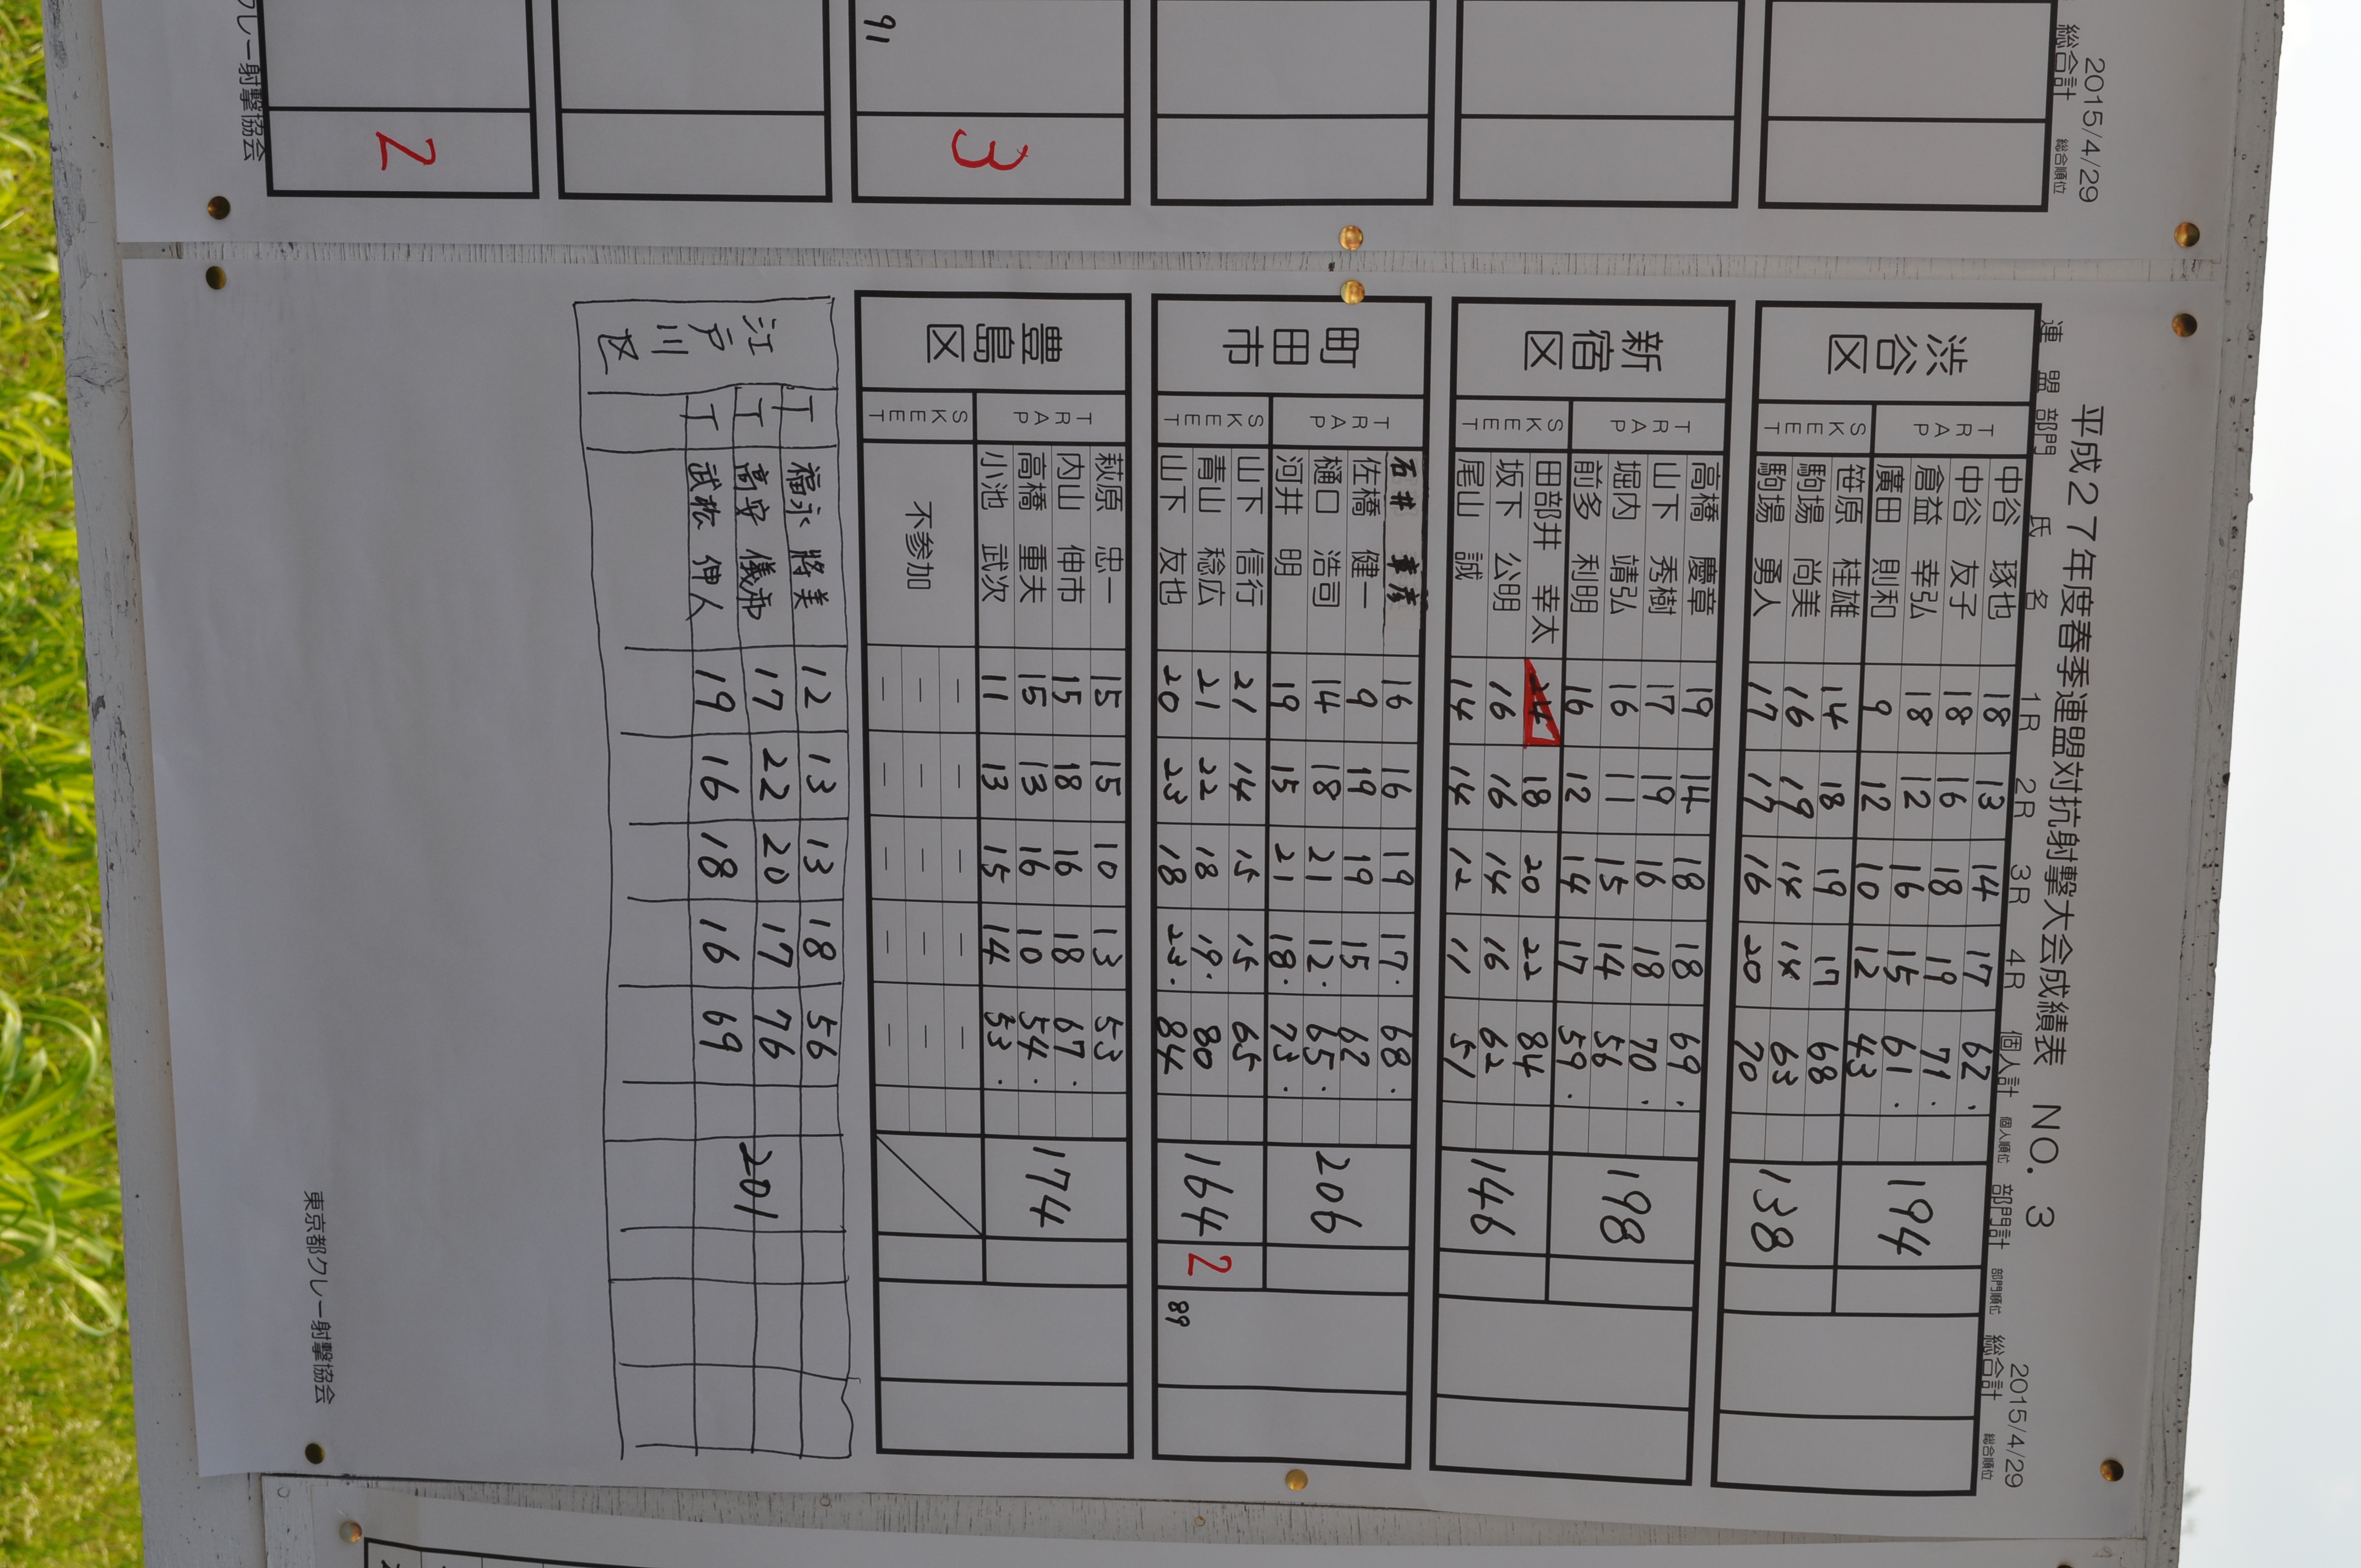 2015/4/29
総合計 総合順位
91
3
2
クレー射撃協会
平成27年度春季連盟対抗射撃大会成績表 NO. 3 2015/4/29
連盟 部門 氏名 1R 2R 3R 4R 個人計 個人順位 部門計 部門順位 総合計 総合順位
渋谷区
TRAP
中谷 琢也 18 13 14 17 62
中谷 友子 18 16 18 19 71
倉益 幸弘 18 12 16 15 61
廣田 則和 9 12 10 12 43
194
SKEET
笹原 桂雄 14 18 19 17 68
駒場 尚美 16 19 14 14 63
駒場 勇人 17 17 16 20 70
138
新宿区
TRAP
高橋 慶章 19 14 18 18 69
山下 秀樹 17 19 16 18 70
堀内 靖弘 16 11 15 14 56
前多 利明 16 12 14 17 59
198
SKEET
田部井 幸太 24 18 20 22 84
坂下 公明 16 16 14 16 62
尾山 誠 14 14 12 11 51
146
町田市
TRAP
石井 16 16 19 17 68
佐橋 健一 9 19 19 15 62
樋口 浩司 14 18 21 12 65
河井 明 19 15 21 18 73
206
SKEET
山下 信行 21 14 15 15 65
青山 稔広 21 22 18 19 80
山下 友也 20 23 18 23 84
164 2
89
豊島区
TRAP
萩原 忠一 15 15 10 13 53
内山 伸市 15 18 16 18 67
高橋 重夫 15 13 16 10 54
小池 武次 11 13 15 14 53
174
SKEET
不参加 － － － － －
－ － － － －
－ － － － －
江戸川区
T 福永 將美 12 13 13 18 56
T 高安 儀 17 22 20 17 76
T 武松 伸人 19 16 18 16 69
201
東京都クレー射撃協会